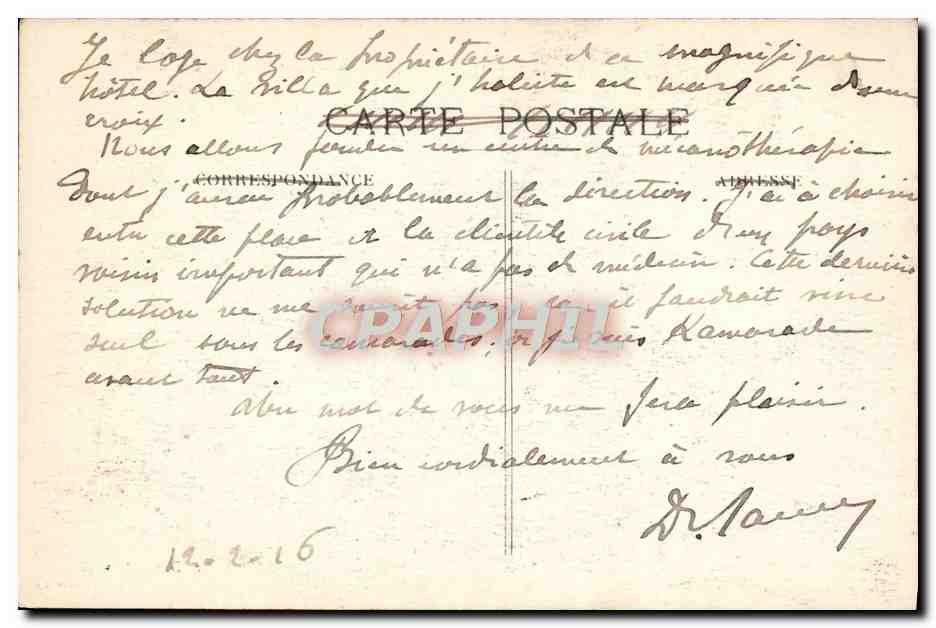 Je loge chez la propriétaire de ce magnifique
hôtel. La villa que j'habite est marquée d'une
croix.
CARTE POSTALE
Nous allons fonder un centre de mécanothérapie
CORRESPONDANCE
ADRESSE
dont j'aurai probablement la direction. J'ai à choisir
entre cette place et la clientèle civile d'un pays
voisin important qui n'a pas de médecin. Cette dernière
solution ne me sourit pas, car il faudrait vivre
seul sans les camarades, or je suis Kamarade
avant tout.
CPAPHIL
Un mot de vous me fera plaisir.
Bien cordialement à vous
Dr.
12-2-16